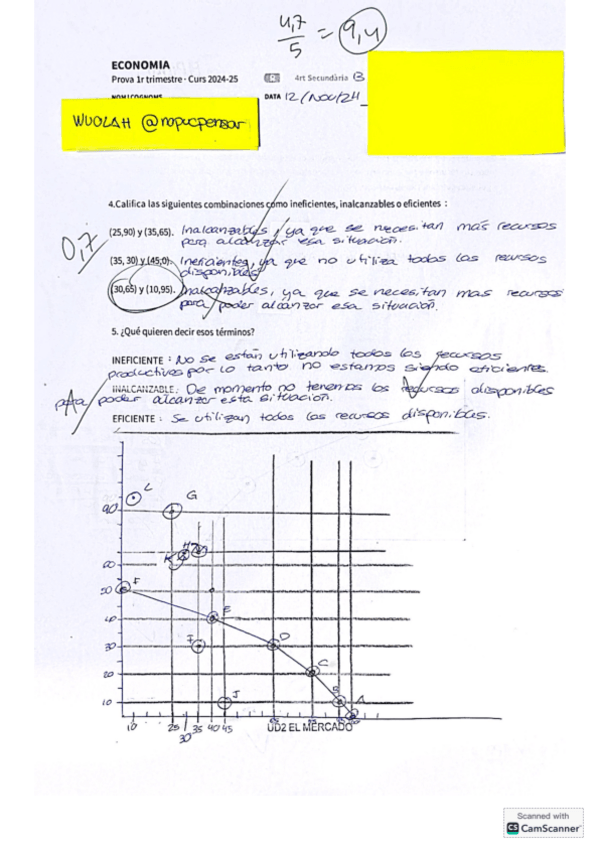 4,7
5 = 9,4
ECONOMIA
Prova 1r trimestre · Curs 2024-25
4rt Secundària B
NOM I COGNOMS
DATA 12/Nov/24
WUOLAH @nopucpensar
4.Califica las siguientes combinaciones como ineficientes, inalcanzables o eficientes :
0,7
(25,90) y (35,65). Inalcanzables, ya que se necesitan más recursos
para alcanzar esa situación.
(35, 30) y (45,0). Ineficientes, ya que no utiliza todos los recursos
disponibles
(30,65) y (10,95). Inalcanzables, ya que se necesitan mas recursos
para poder alcanzar esa situación.
5. ¿Qué quieren decir esos términos?
INEFICIENTE : No se están utilizando todos los recursos
productivos por lo tanto no estamos siendo eficientes.
INALCANZABLE: De momento no tenemos los recursos disponibles
para poder alcanzar esta situación.
EFICIENTE : Se utilizan todos los recursos disponibles.
L
G
90
K H
60
F
50
E
40
I D
30
C
20
J B A
10
10 25 30 35 40 45
UD2 EL MERCADO
Scanned with
CS CamScanner